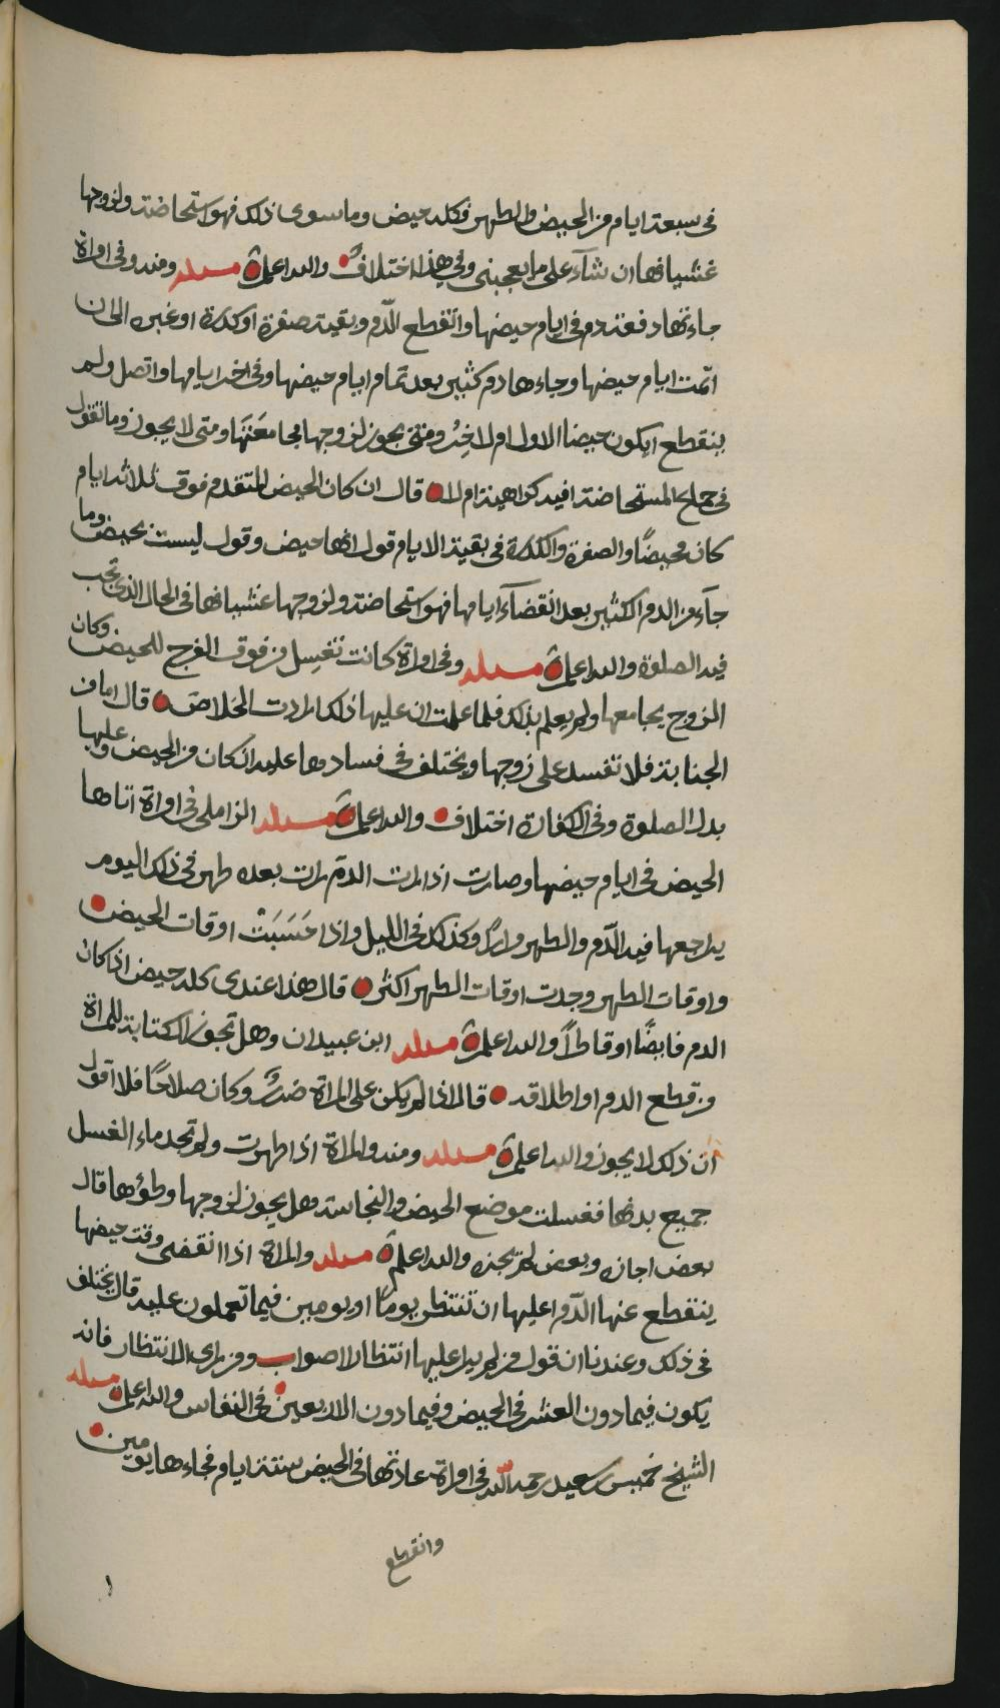 في سبعة ايام من الحيض والطهر فكله حيض وما سوى ذلك فهو استحاضة ولزوجها
غشيانها ان شاء على ما يعجبني وفي هذا اختلاف والله اعلم مسئلة ومنه وفي امراة
جاءتها دفعة دم في ايام حيضها وانقطع الدّم وبقيت صفرة او كدرة او غبرة الى ان
اتمت ايام حيضها وجاءها دم كثير بعد تمام ايام حيضها وفي اخر ايامها واتصل ولم
ينقطع ايكون حيضا الاول ام الاخِرُ ومتى يجوز لزوجها مجامعَتهَا ومتى لا يجوز وما تقول
في جماع المستحاضة افيه كراهية ام لا قال ان كان الحيض المتقدم فوق ثلاثة ايام
كان محيضًا والصفرة والكدرة في بقية الايام قول انها حيض وقول ليست بحيض وما
جاء من الدم الكثير بعد انقضاء ايامها فهو استحاضة ولزوجها غشيانها في الحال الذي تجب
فيه الصلوة والله اعلم مسئلة وفي امراة كانت تغسل من فوق الفرج للحيض وكان
الزوج يجامعها ولم يعلم بذلك فلما علمت ان عليها ذلك ارادت الخلاص قال اما من
الجنابة فلا تفسد على زوجها ويختلف في فسادها عليه ان كان من الحيض وعليها
بدل الصلوة وفي الكفارة اختلاف والله اعلم مسئلة الزاملي في امراة اتاها
الحيض في ايام حيضها وصارت اذا رات الدّم رات بعده طهر في ذلك اليوم
يراجعها فيه الدّم والطهر مرارًا وكذلك في الليل واذا حَسَبَتْ اوقات الحيض
واوقات الطهر وجدت اوقات الطهر اكثر قال هذا عندي كله حيض اذا كان
الدم فايضًا اوقاطرًا والله اعلم مسئلة ابن عبيدان وهل تجوز الكتابة للمراة
من قطع الدم او اطلاقه قال اذا لم يكن على المراة ضررٌ وكان صلاحًا فلا اقول
ان ذلك لا يجوز والله اعلم مسئلة ومنه والمراة اذا طهرت ولم تجد ماء الغسل
جميع بدنها فغسلت موضع الحيض والنجاسة وهل يجوز لزوجها وطؤها قال
بعض اجازه وبعض لم يجزه والله اعلم مسئلة والمراة اذا انقضى وقت حيضها
ينقطع عنها الدّم اعليها ان تنتظر يومًا او يومين فيما تعملون عليه قال يختلف
في ذلك وعندنا ان قول من لم ير عليها انتظار الاصواب ومن راى الانتظار فانه
يكون فيما دون العشر في الحيض وفيما دون الاربعين في النفاس والله اعلم مسئلة
الشيخ خميس بن سعيد رحمه الله في امراة عادتها في الحيض ستة ايام فجاءها يومين
وانقطع